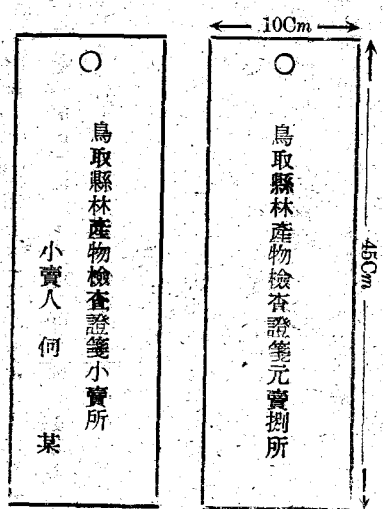 10Cm
45Cm
鳥取縣林產物檢査證箋元賣捌所
鳥取縣林產物檢査證箋小賣所
小賣人 何 某